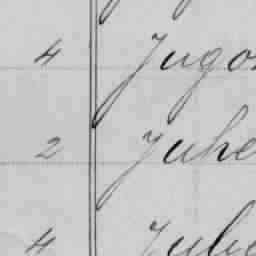 4 Jugo
2 Juhe
4 Julie